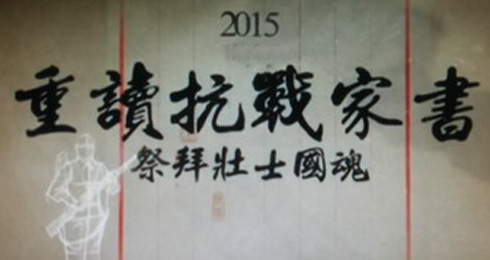 2015
重讀抗戰家書
祭拜壯士國魂